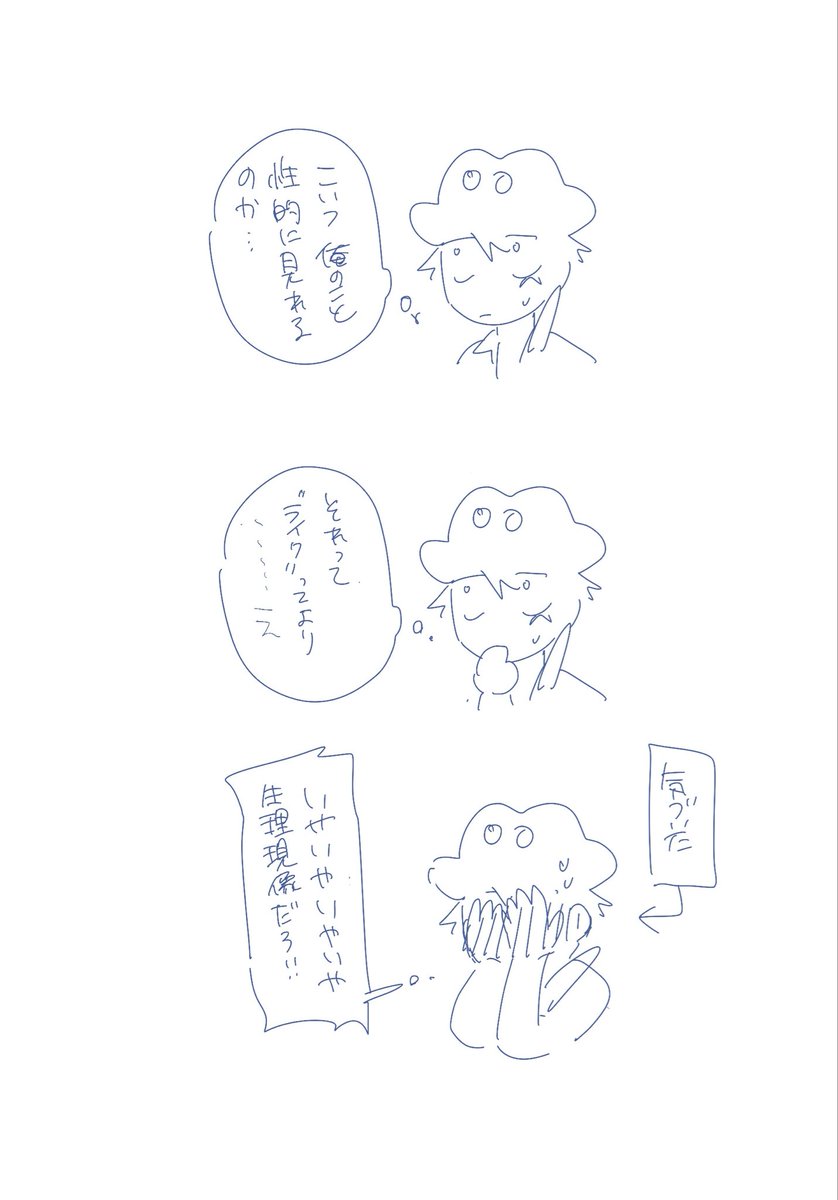 こいつ俺のこと
性的に見れる
のか…
それって
"ライク"ってより
〜〜〜〜
気づいた
いやいやいやいや
生理現象だろ!!